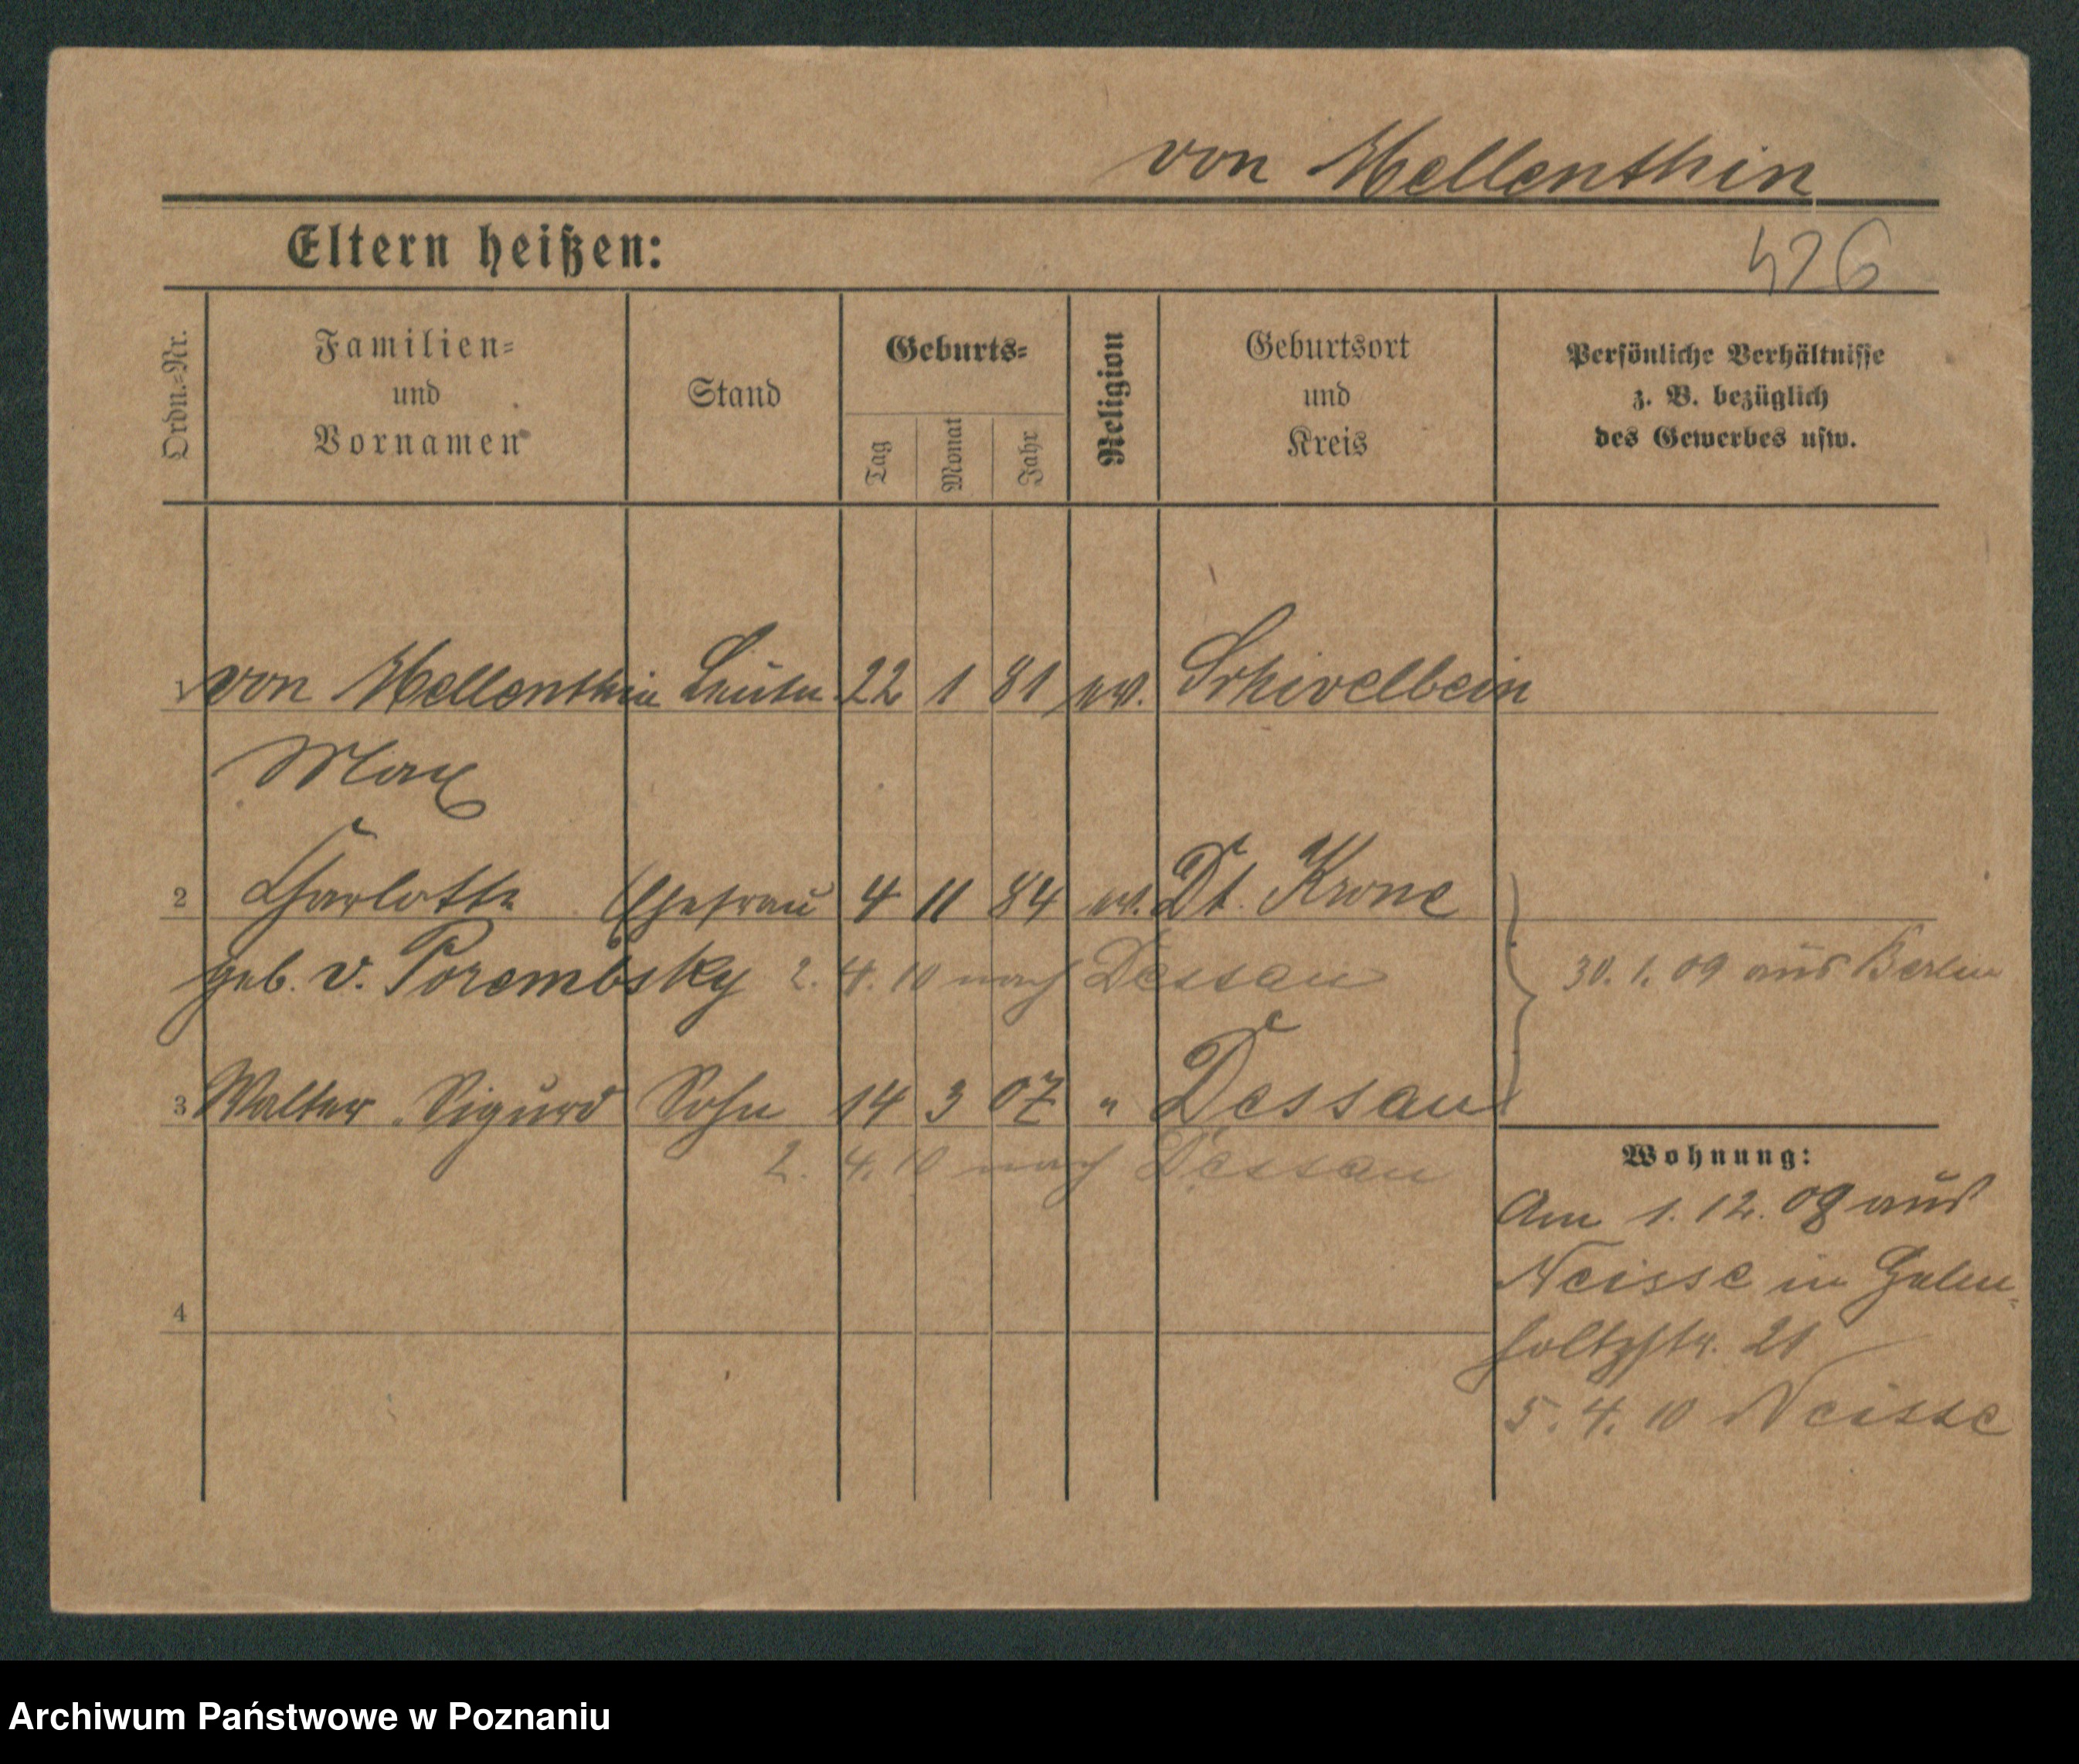 von Mellenthin
Eltern heißen:
426
Ordn.=Nr.
Familien=
und
Vornamen
Stand
Geburts=
Tag
Monat
Jahr
Religion
Geburtsort
und
Kreis
Persönliche Verhältnisse
z. B. bezüglich
des Gewerbes usw.
1 von Mellenthin Leutn. 22 1 81 ev. Schivelbein
Max
2 Charlotte Ehefrau 4 11 84 ev. Dt. Krone
geb. v. Porembsky 2. 4. 10 nach Dessau
30. 1. 09 aus Berlin
3 Walter Sigurd Sohn 14 3 07 " Dessau
2. 4. 10 nach Dessau
Wohnung:
Am 1. 12. 08 aus
Neisse in
holtzstr. 21
5. 4. 10 Neisse
4
Archiwum Państwowe w Poznaniu